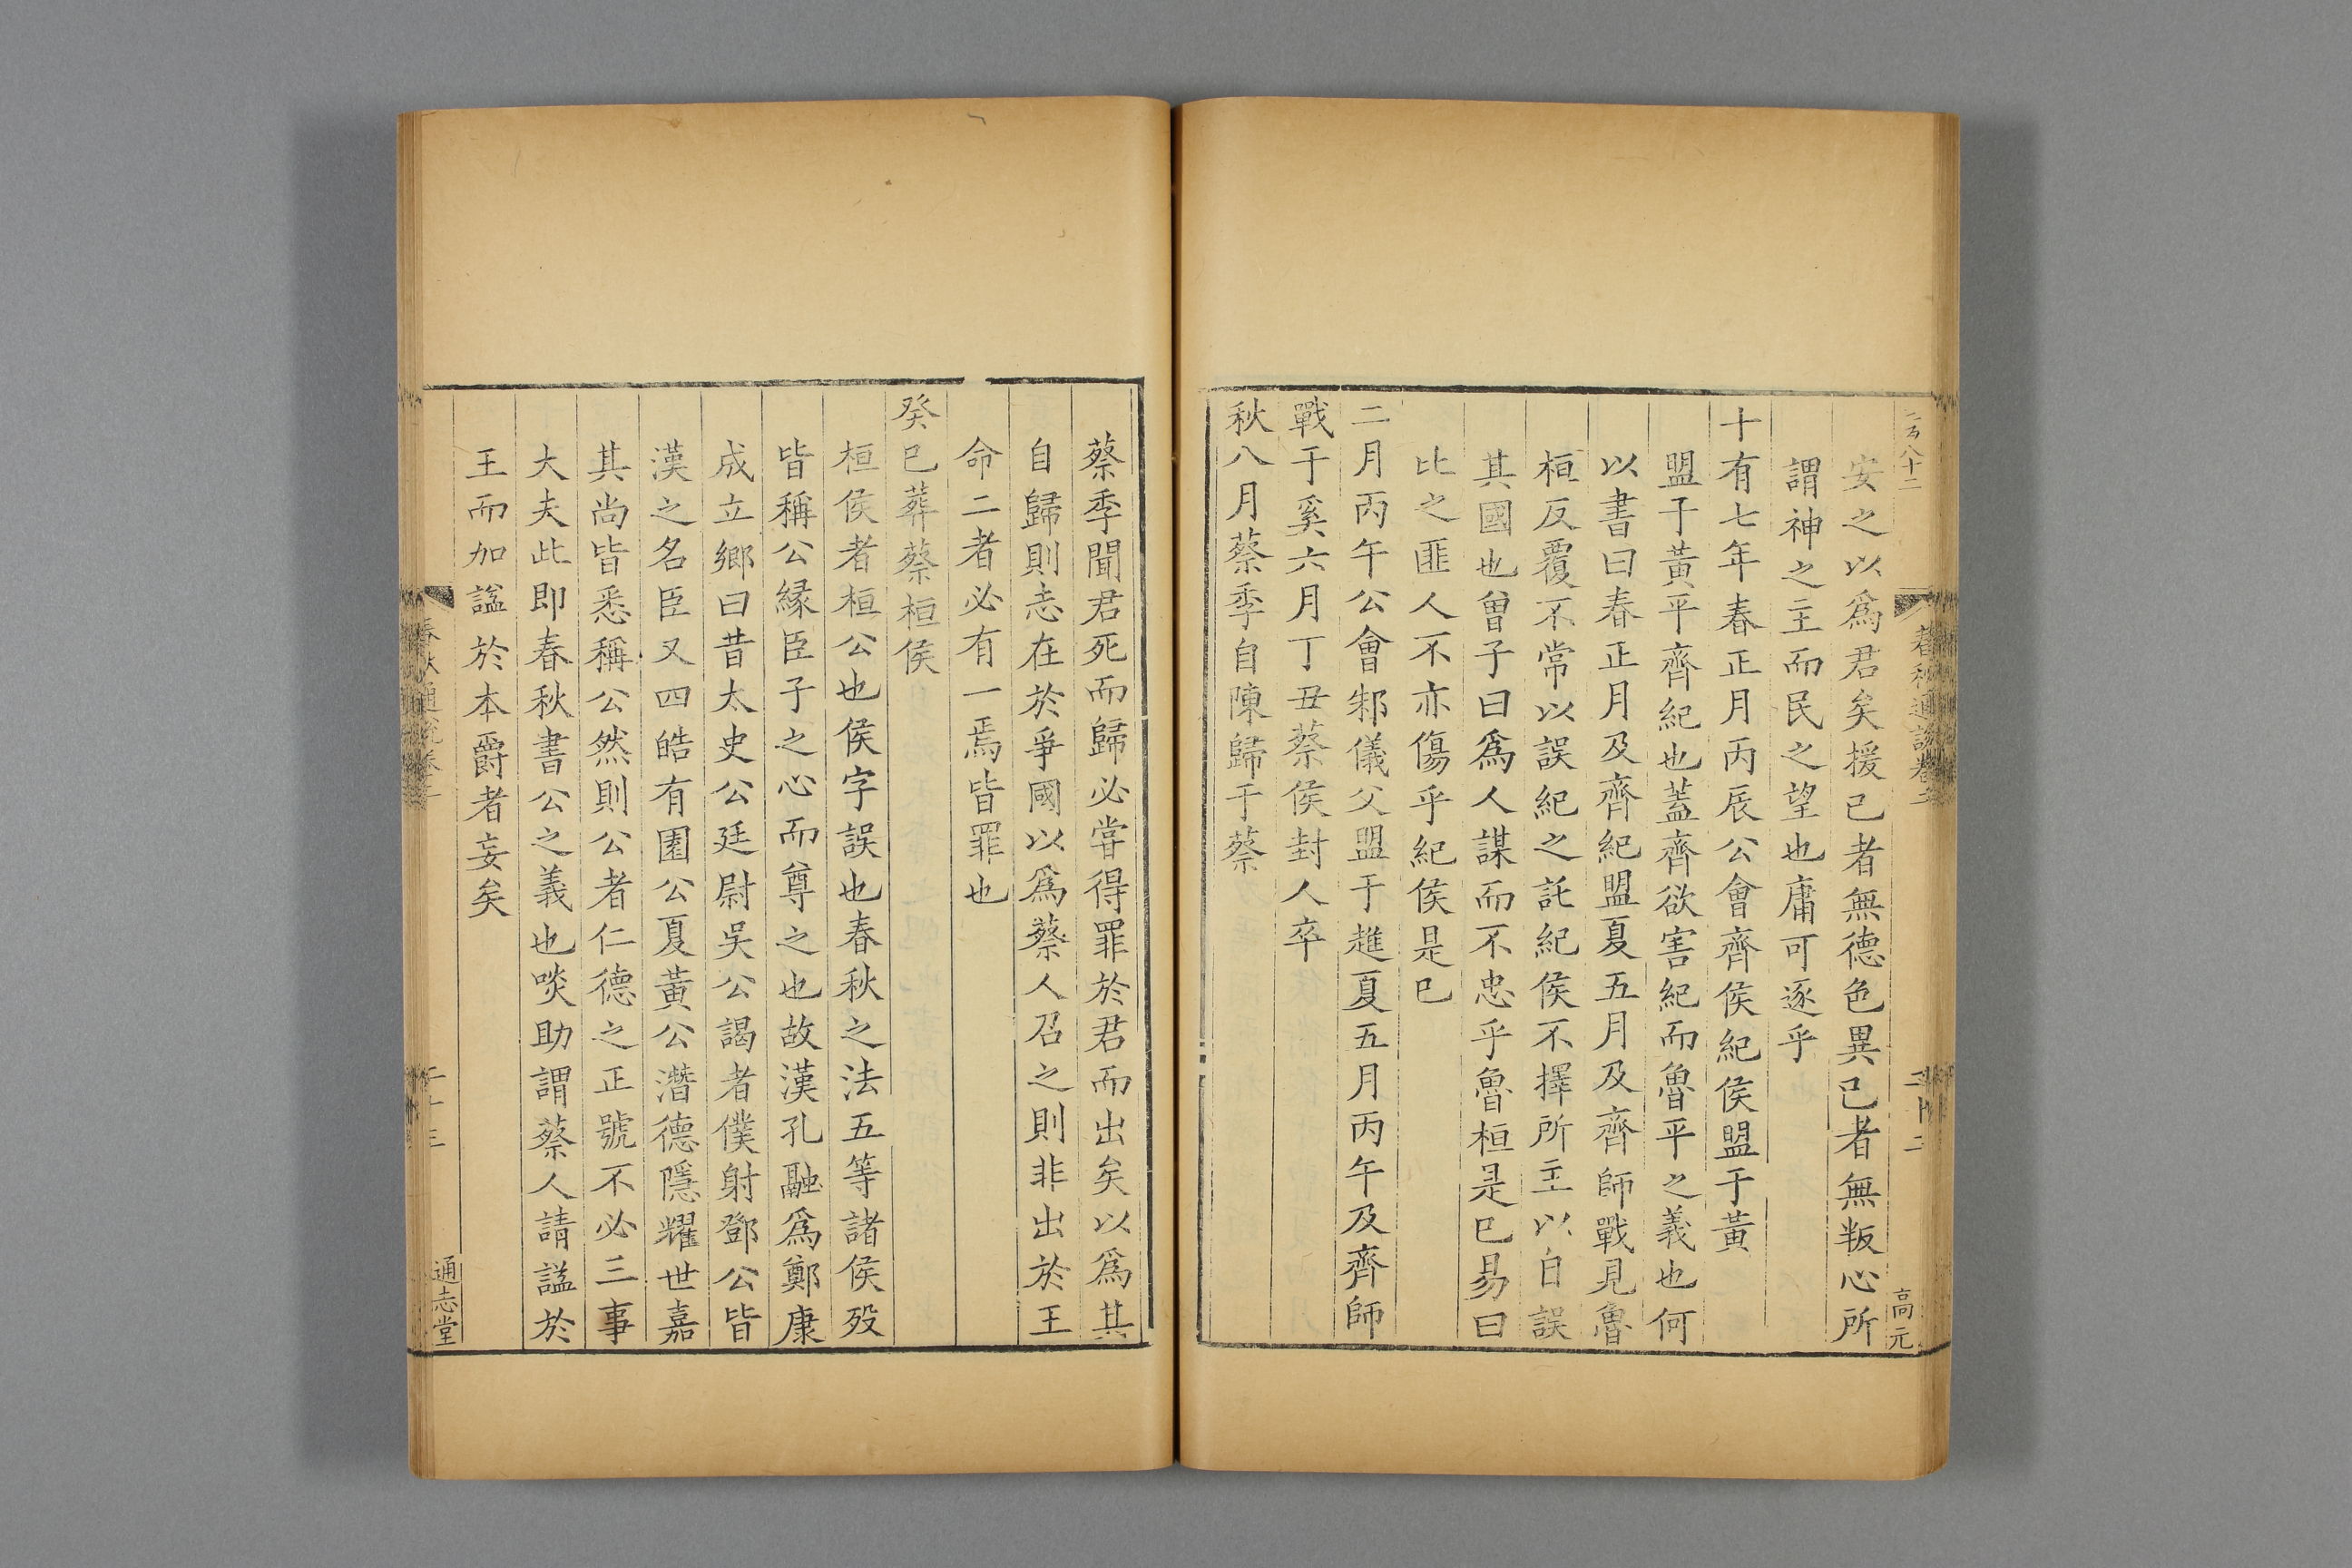 安之以爲君矣援已者無德色異已者無叛心所
謂神之主而民之望也庸可逐乎
十有七年春正月丙辰公會齊侯紀侯盟于黃
盟于黃平齊紀也蓋齊欲害紀而魯平之義也何
以書曰春正月及齊紀盟夏五月及齊師戰見魯
桓反覆不常以誤紀之託紀侯不擇所主以自誤
其國也曾子曰爲人謀而不忠乎魯桓是巳易曰
比之匪人不亦傷乎紀侯是巳
二月丙午公會邾儀父盟于趡夏五月丙午及齊師
戰于奚六月丁丑蔡侯封人卒
秋八月蔡季自陳歸于蔡
高元
蔡季聞君死而歸必甞得罪於君而出矣以爲其
自歸則志在於爭國以爲蔡人召之則非出於王
命二者必有一焉皆罪也
癸巳葬蔡桓侯
桓侯者桓公也侯字誤也春秋之法五等諸侯歿
皆稱公緣臣子之心而尊之也故漢孔融爲鄭康
成立鄉曰昔太史公廷尉吳公謁者僕射鄧公皆
漢之名臣又四皓有園公夏黃公潛德隱耀世嘉
其尚皆悉稱公然則公者仁德之正號不必三事
大夫此即春秋書公之義也啖助謂蔡人請謚於
王而加謚於本爵者妄矣
通志堂